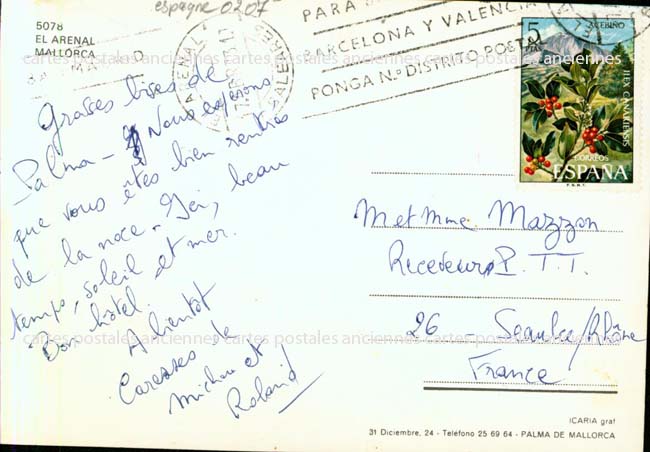 espagne 0207
5078
EL ARENAL
MALLORCA
MADRID
ARENAL
BALEARES
PARA
BARCELONA Y VALENCIA
PONGA N.º DISTRITO POSTAL
5
PTAS
ACEBIÑO
ILEX CANARIENSIS
CORREOS
ESPAÑA
F.N.M.T.
Grosses bises de
Palma - Nous espérons
que vous êtes bien rentrés
de la noce - Ici, beau
temps, soleil et mer.
Bon hôtel.
A bientôt
Caresses de
Michou et
Roland
M et Mme Mazzon
Receveur P.T.T.
26 - /Rhône
France
cartes postales anciennes cartes postales anciennes cartes postales anciennes
cartes postales anciennes cartes postales anciennes cartes postales anciennes
ICARIA graf
31 Diciembre, 24 - Teléfono 25 69 64 - PALMA DE MALLORCA